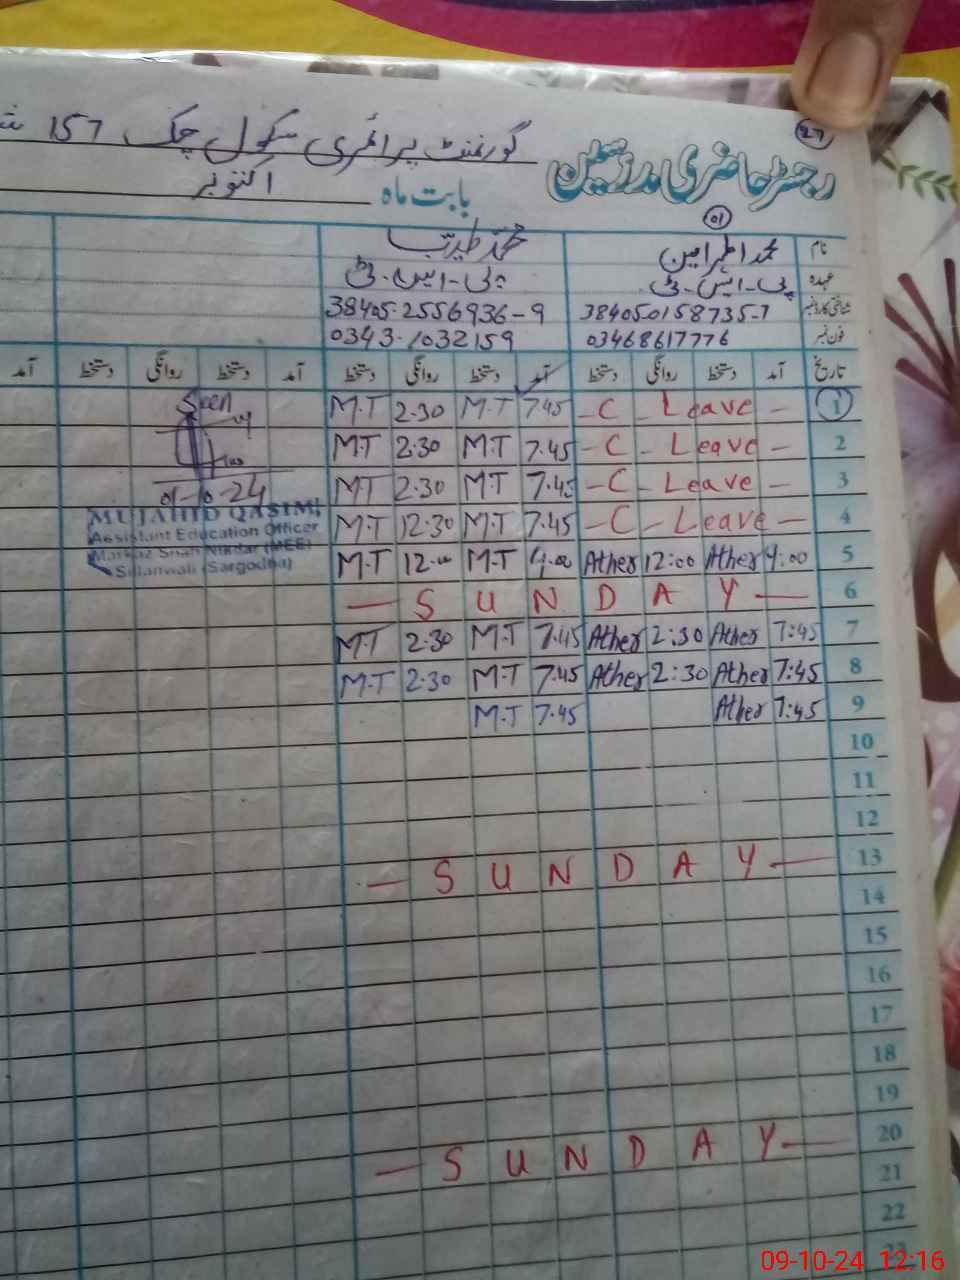 27
رجسٹر حاضری مدرسین گورنمنٹ پرائمری سکول چک 157
بابت ماہ اکتوبر
01
نام محمد اطہر امین محمد طیب
عہدہ پی-ایس-ٹی پی-ایس-ٹی
شناختی کارڈ نمبر 384050158735-7 38405-2556936-9
فون نمبر 03468617776 0343-1032159
تاریخ آمد دستخط روانگی دستخط آمد دستخط روانگی دستخط آمد دستخط روانگی دستخط آمد
M.T 2.30 M.T 7.45 - C - Leave - 1
M.T 2.30 M.T 7.45 - C - Leave - 2
M.T 2.30 M.T 7.45 - C - Leave - 3
M.T 12.30 M.T 7.45 - C - Leave - 4
M.T 12.00 M.T 9.00 Ather 12:00 Ather 9:00 5
— S U N D A Y — 6
M.T 2.30 M.T 7.45 Ather 2:30 Ather 7:45 7
M.T 2.30 M.T 7.45 Ather 2:30 Ather 7:45 8
M.T 7.45 Ather 7:45 9
10
11
12
— S U N D A Y — 13
14
15
16
17
18
19
— S U N D A Y — 20
21
22
23
Seen
01-10-24
MUJAHID QASIMI
Assistant Education Officer
Markaz Shah Nikdar (MEE)
Sillanwali (Sargodha)
09-10-24 12:16